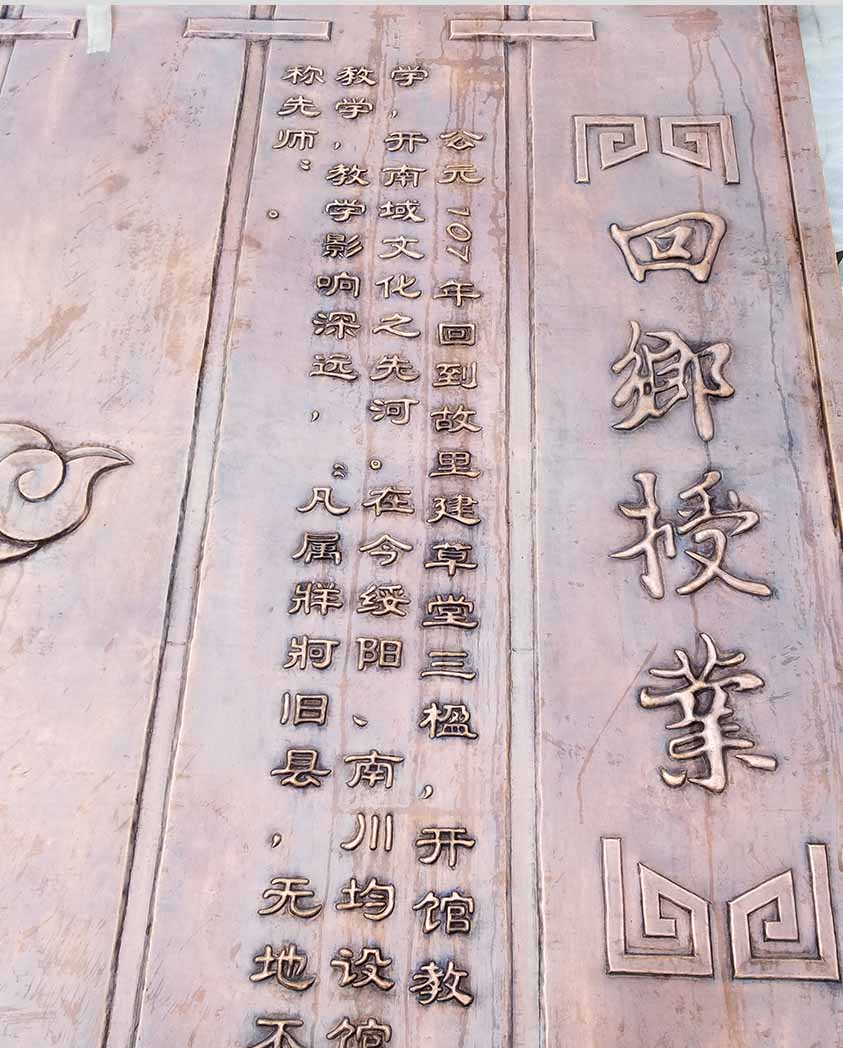 回鄉授業
公元107年回到故里建草堂三楹，开馆教
学，开南域文化之先河。在今绥阳、南川均设馆
教学，教学影响深远，“凡属牂牁旧县，无地不
称先师”。